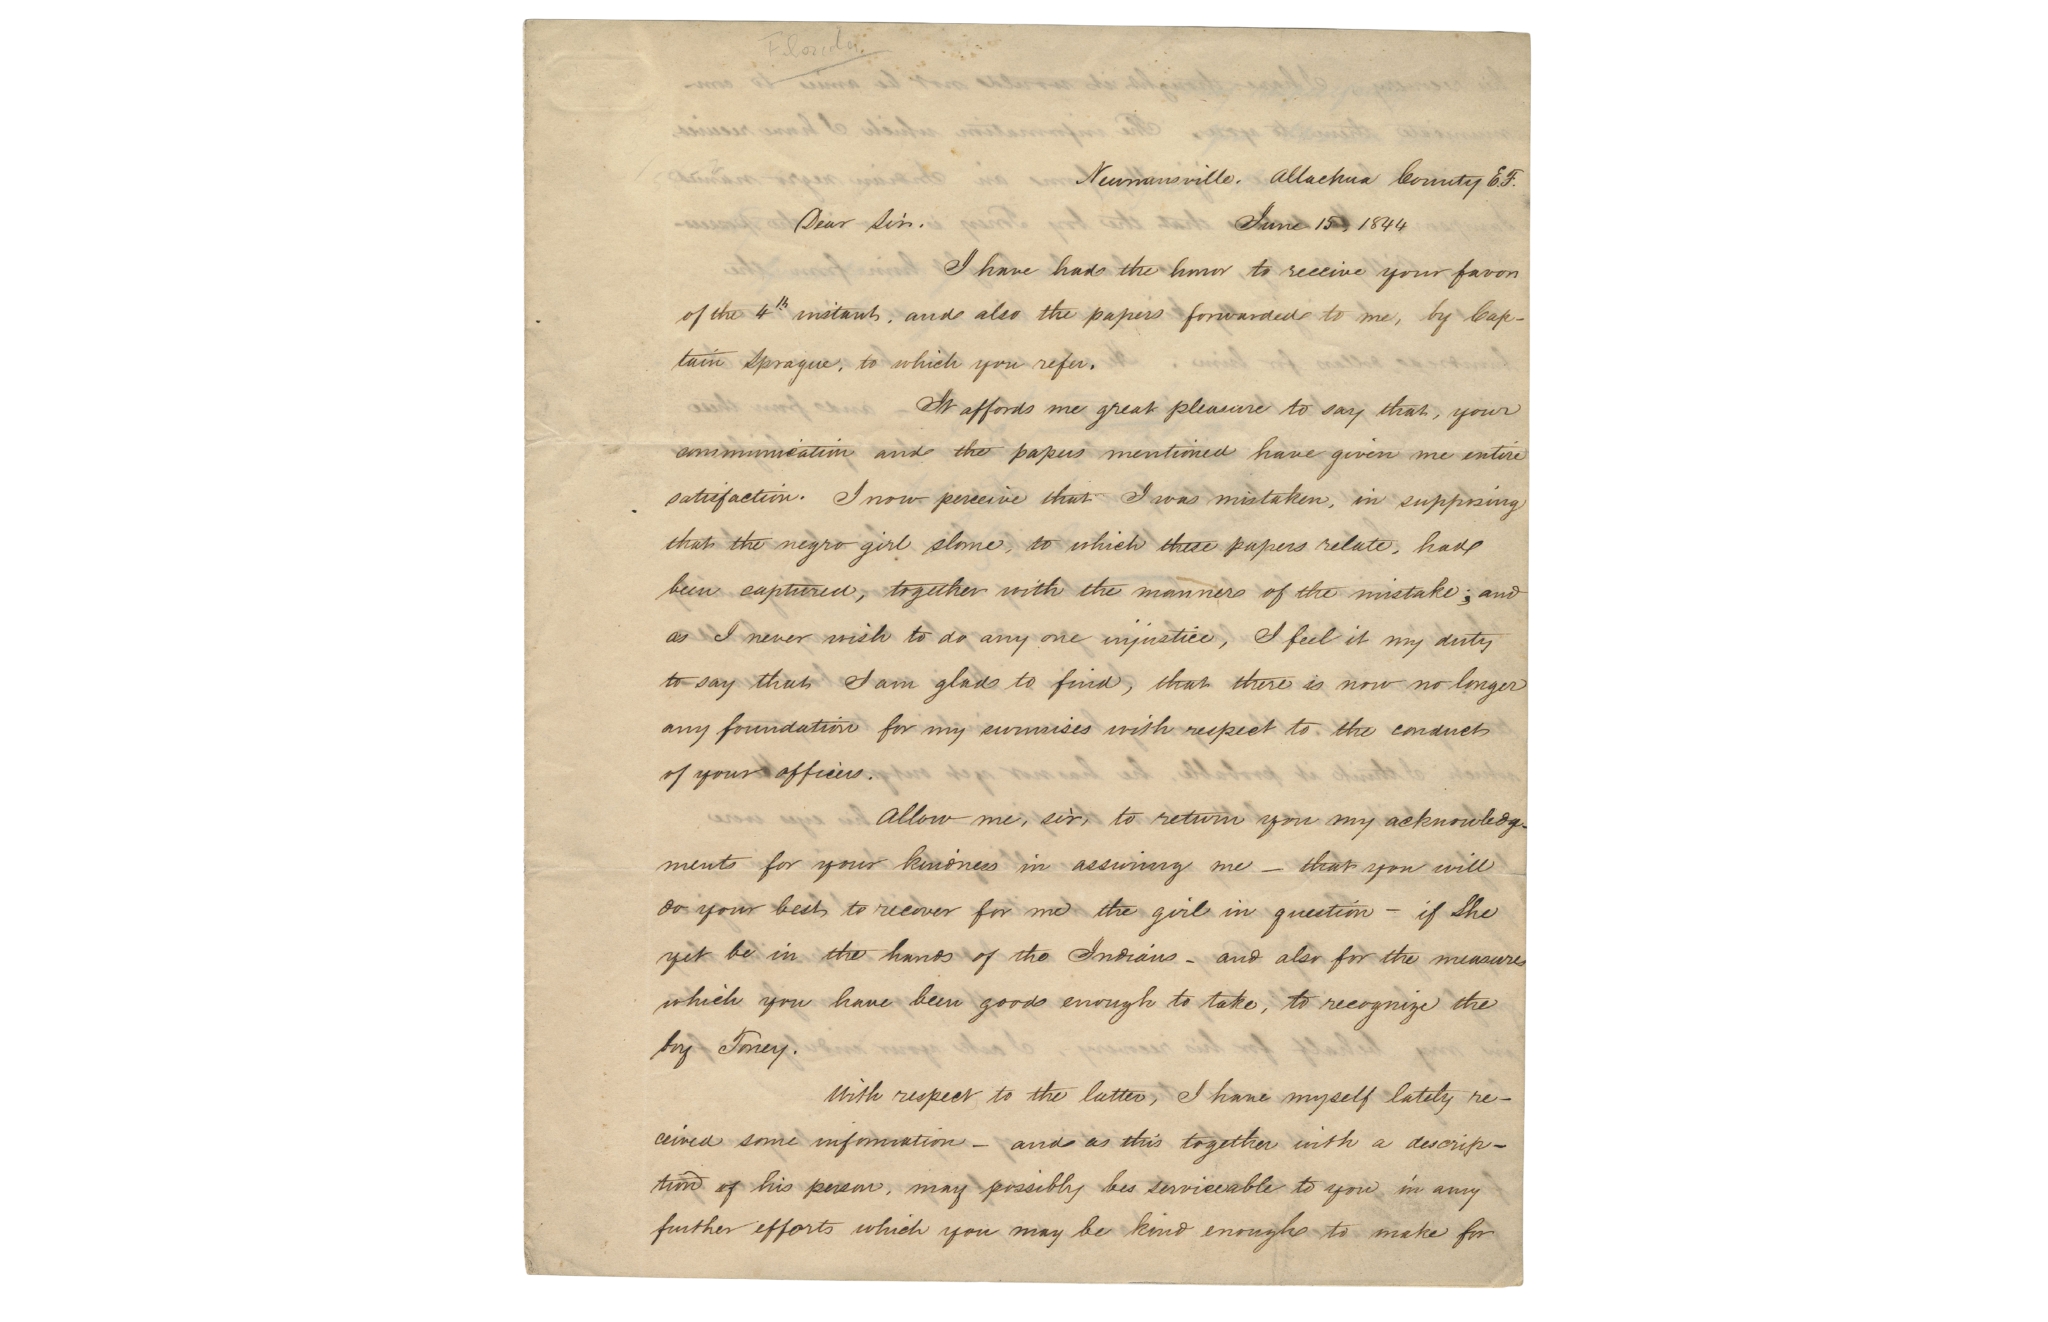 Florida.
Newnansville. Allachua County E.F.
Dear Sir. June 15, 1844
I have had the honor to receive your favor
of the 4th instant, and also the papers forwarded to me, by Cap-
tain Sprague, to which you refer.
It affords me great pleasure to say that, your
communication and the papers mentioned have given me entire
satisfaction. I now perceive that I was mistaken, in supposing
that the negro girl slome, to which these papers relate, had
been captured, together with the manners of the mistake; and
as I never wish to do any one injustice, I feel it my duty
to say that I am glad to find, that there is now no longer
any foundation for my surmises with respect to the conduct
of your officers.
Allow me, sir, to return you my acknowledge-
ments for your kindness in assuring me — that you will
do your best to recover for me the girl in question — if She
yet be in the hands of the Indians — and also for the measures
which you have been good enough to take, to recognize the
boy Toney.
With respect to the latter, I have myself lately re-
ceived some information — and as this together with a descrip-
tion of his person, may possibly be serviceable to you in any
further efforts which you may be kind enough to make for